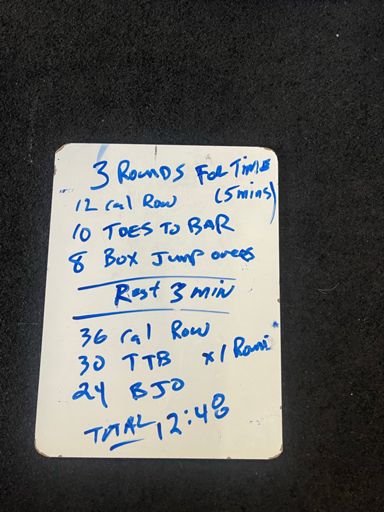 3 Rounds For Time
12 cal Row (5 mins)
10 TOES TO BAR
8 Box Jump overs
Rest 3 min
36 cal Row
30 TTB x 1
24 BJO
TOTAL 12:48